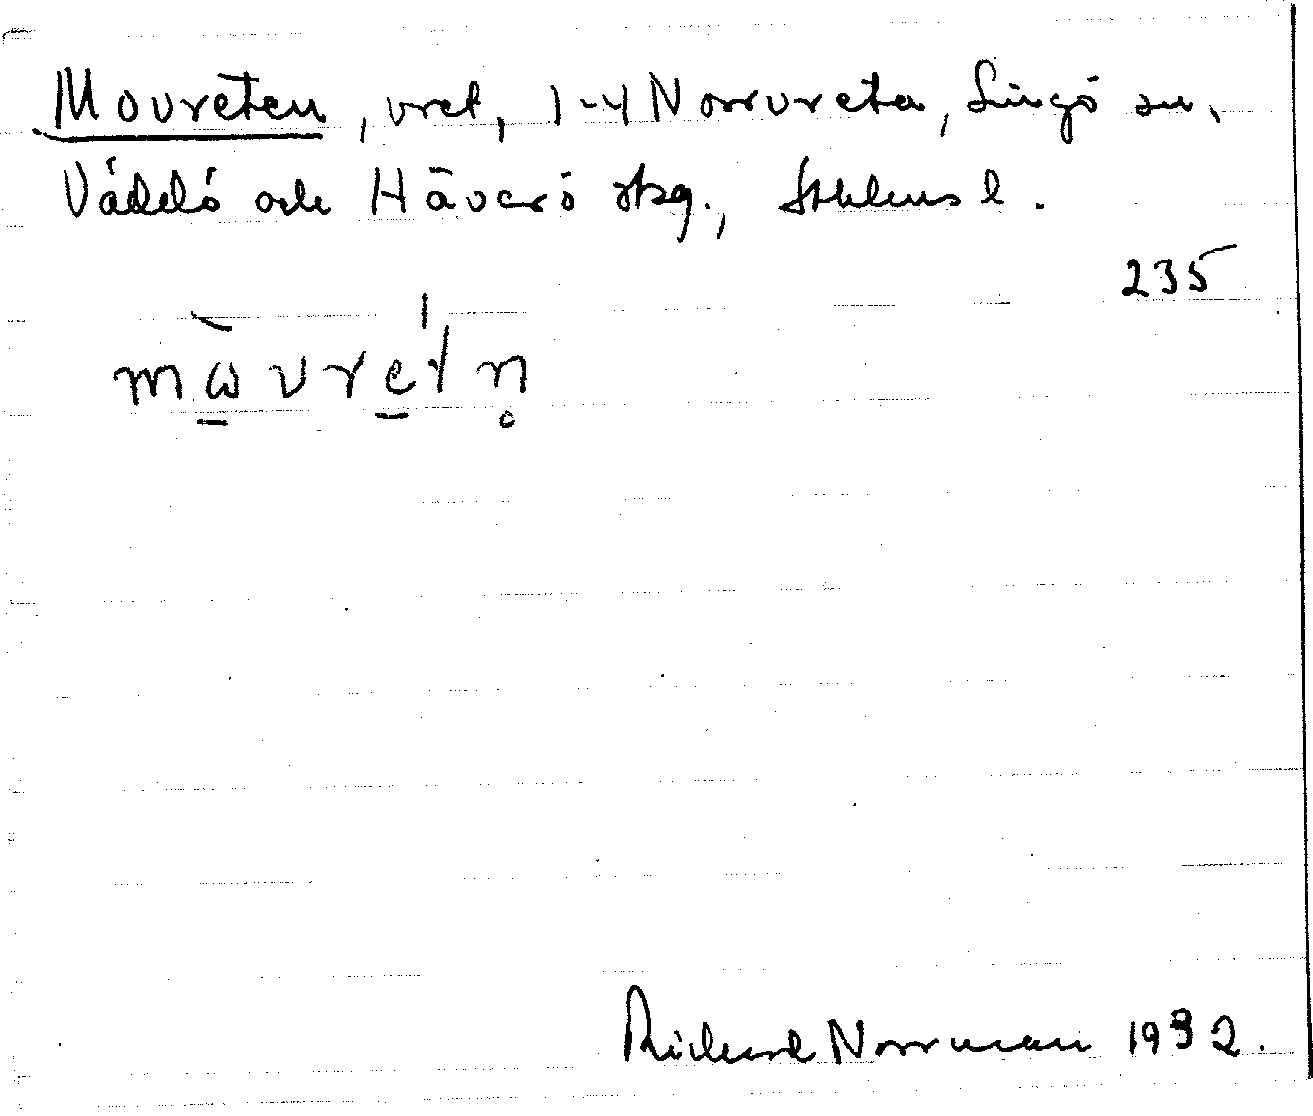 Movreten, vret, 1-4 Norrvreta, Singö sn,
Väddö och Häverö skg., Sthlms l.
235
mɷ̠̀vre̠tn̥
Richard Norrman 1932.